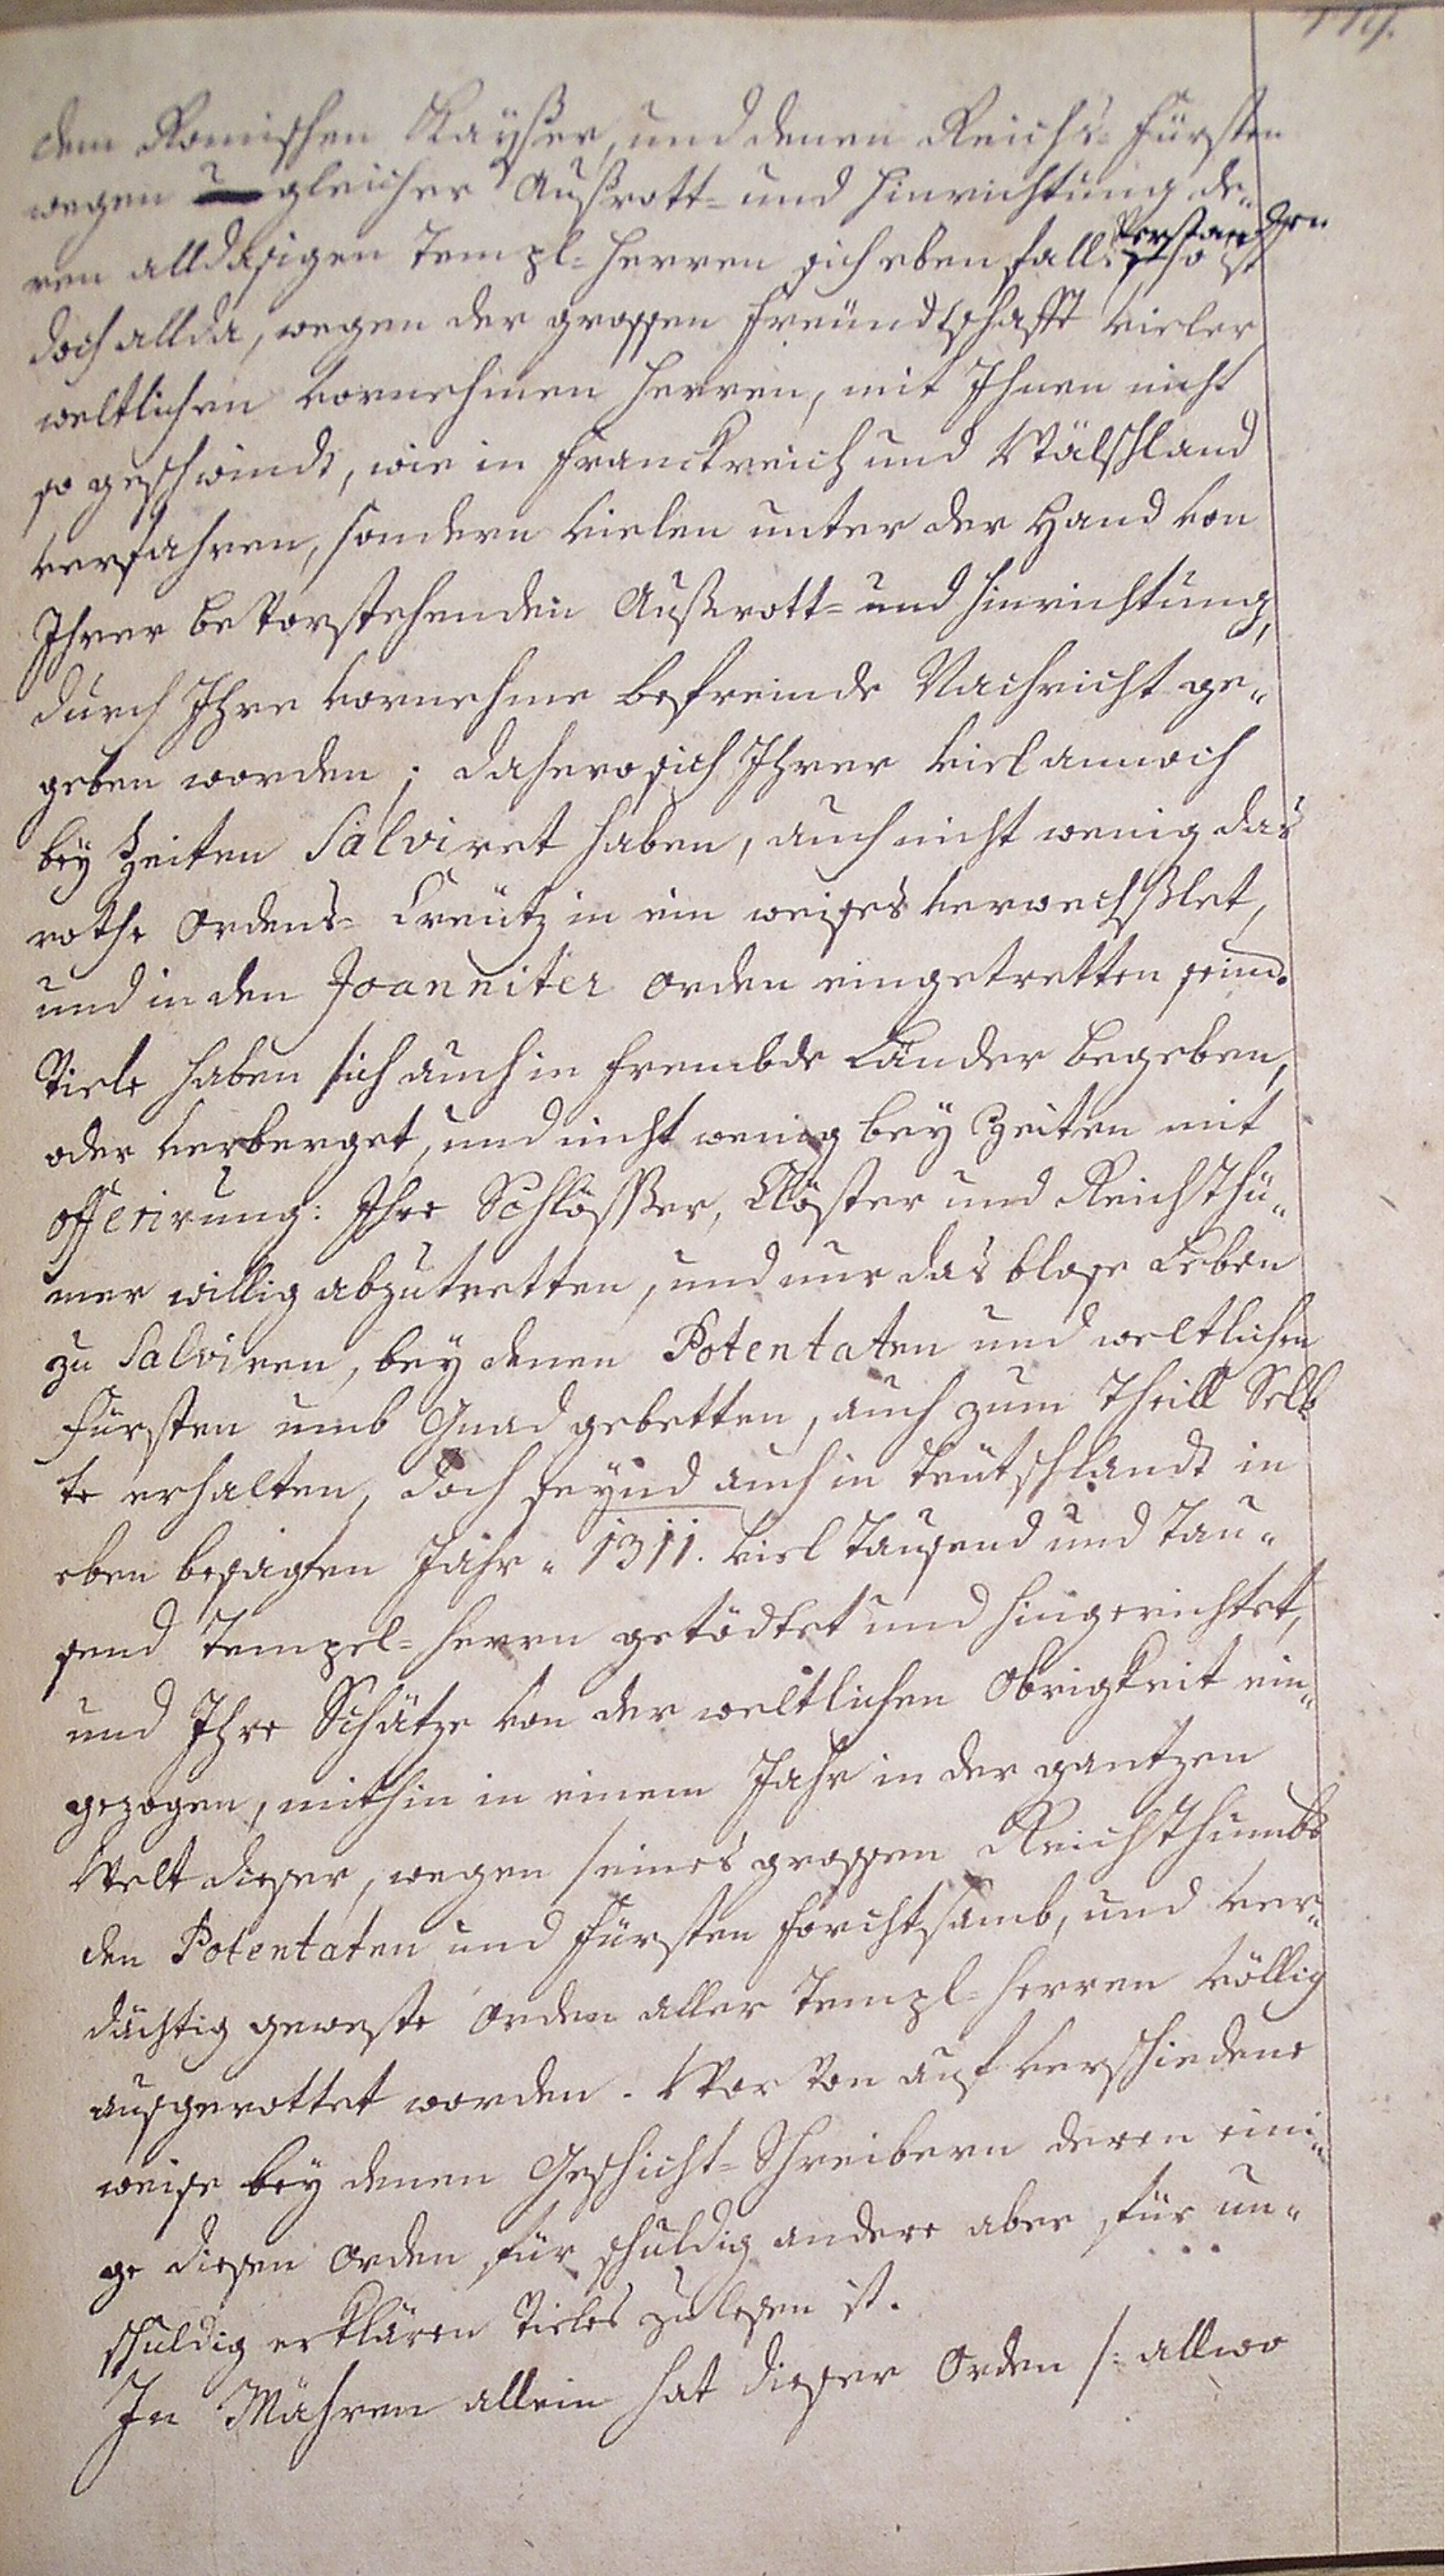 dem Romischen Kaÿser, und denen Reichs-Fürsten
wegen gleicher Außrott- und Hinrichtung de„
ren alldasigen Templ-Herren sich eben falls verstanden so ist
doch allda, wegen der grossen Freündtschafft vieler
weltlichen vornehmen Herren, mit Ihnen nicht
so geschwindt, wie in Franckreich und Wälschland
verfahren, sondern vielen unter der Hand von
Ihrer bevorstehenden Außrott- und Hinrichtung,
durch Ihre vornehme befreinde Nachricht ge„
geben worden; dahero sich Ihrer viel annoch
beÿ Zeiten Salviret haben, auch nicht wenig das
rothe Ordens-Creütz in ein weises verwechßlet,
und in den Joanniter Orden eingetretten seind.
Viele haben sich auch in frembde Länder begeben,
oder verberget, und nicht wenig beÿ Zeiten mit
offerirung: Ihre Schlösser, Clöster und Reichthü„
mer willig abzutretten, und nur das blose Leben
zu Salviren, beÿ denen Potentaten und weltlichen
Fürsten umb Gnad gebetten, auch zum Theill Selb
te erhalten, doch seÿnd auch in Teütschlandt in
eben besagten Jahr „ 1311. viel Tausend und Tau„
send Tempel-Herrn getödtet und hingerichtet,
und Ihre Schätze von der weltlichen Obrigkeit ein„
gezogen, mithin in einem Jahr in der gantzen
Welt dieser, wegen seines grossen Reichthumbs
den Potentaten und Fürsten forchtsamb, und ver„
dächtig geweste Orden aller Templ-Herren völlig
ausgerottet worden. Wor von auf verschiedene
weise beÿ denen Geschicht-Schreibern deren eini„
ge diesen Orden für schuldig andere aber für un„
schuldig erklären vieles zu lesen ist.
In Mähren allein hat dieser Orden /: allwo